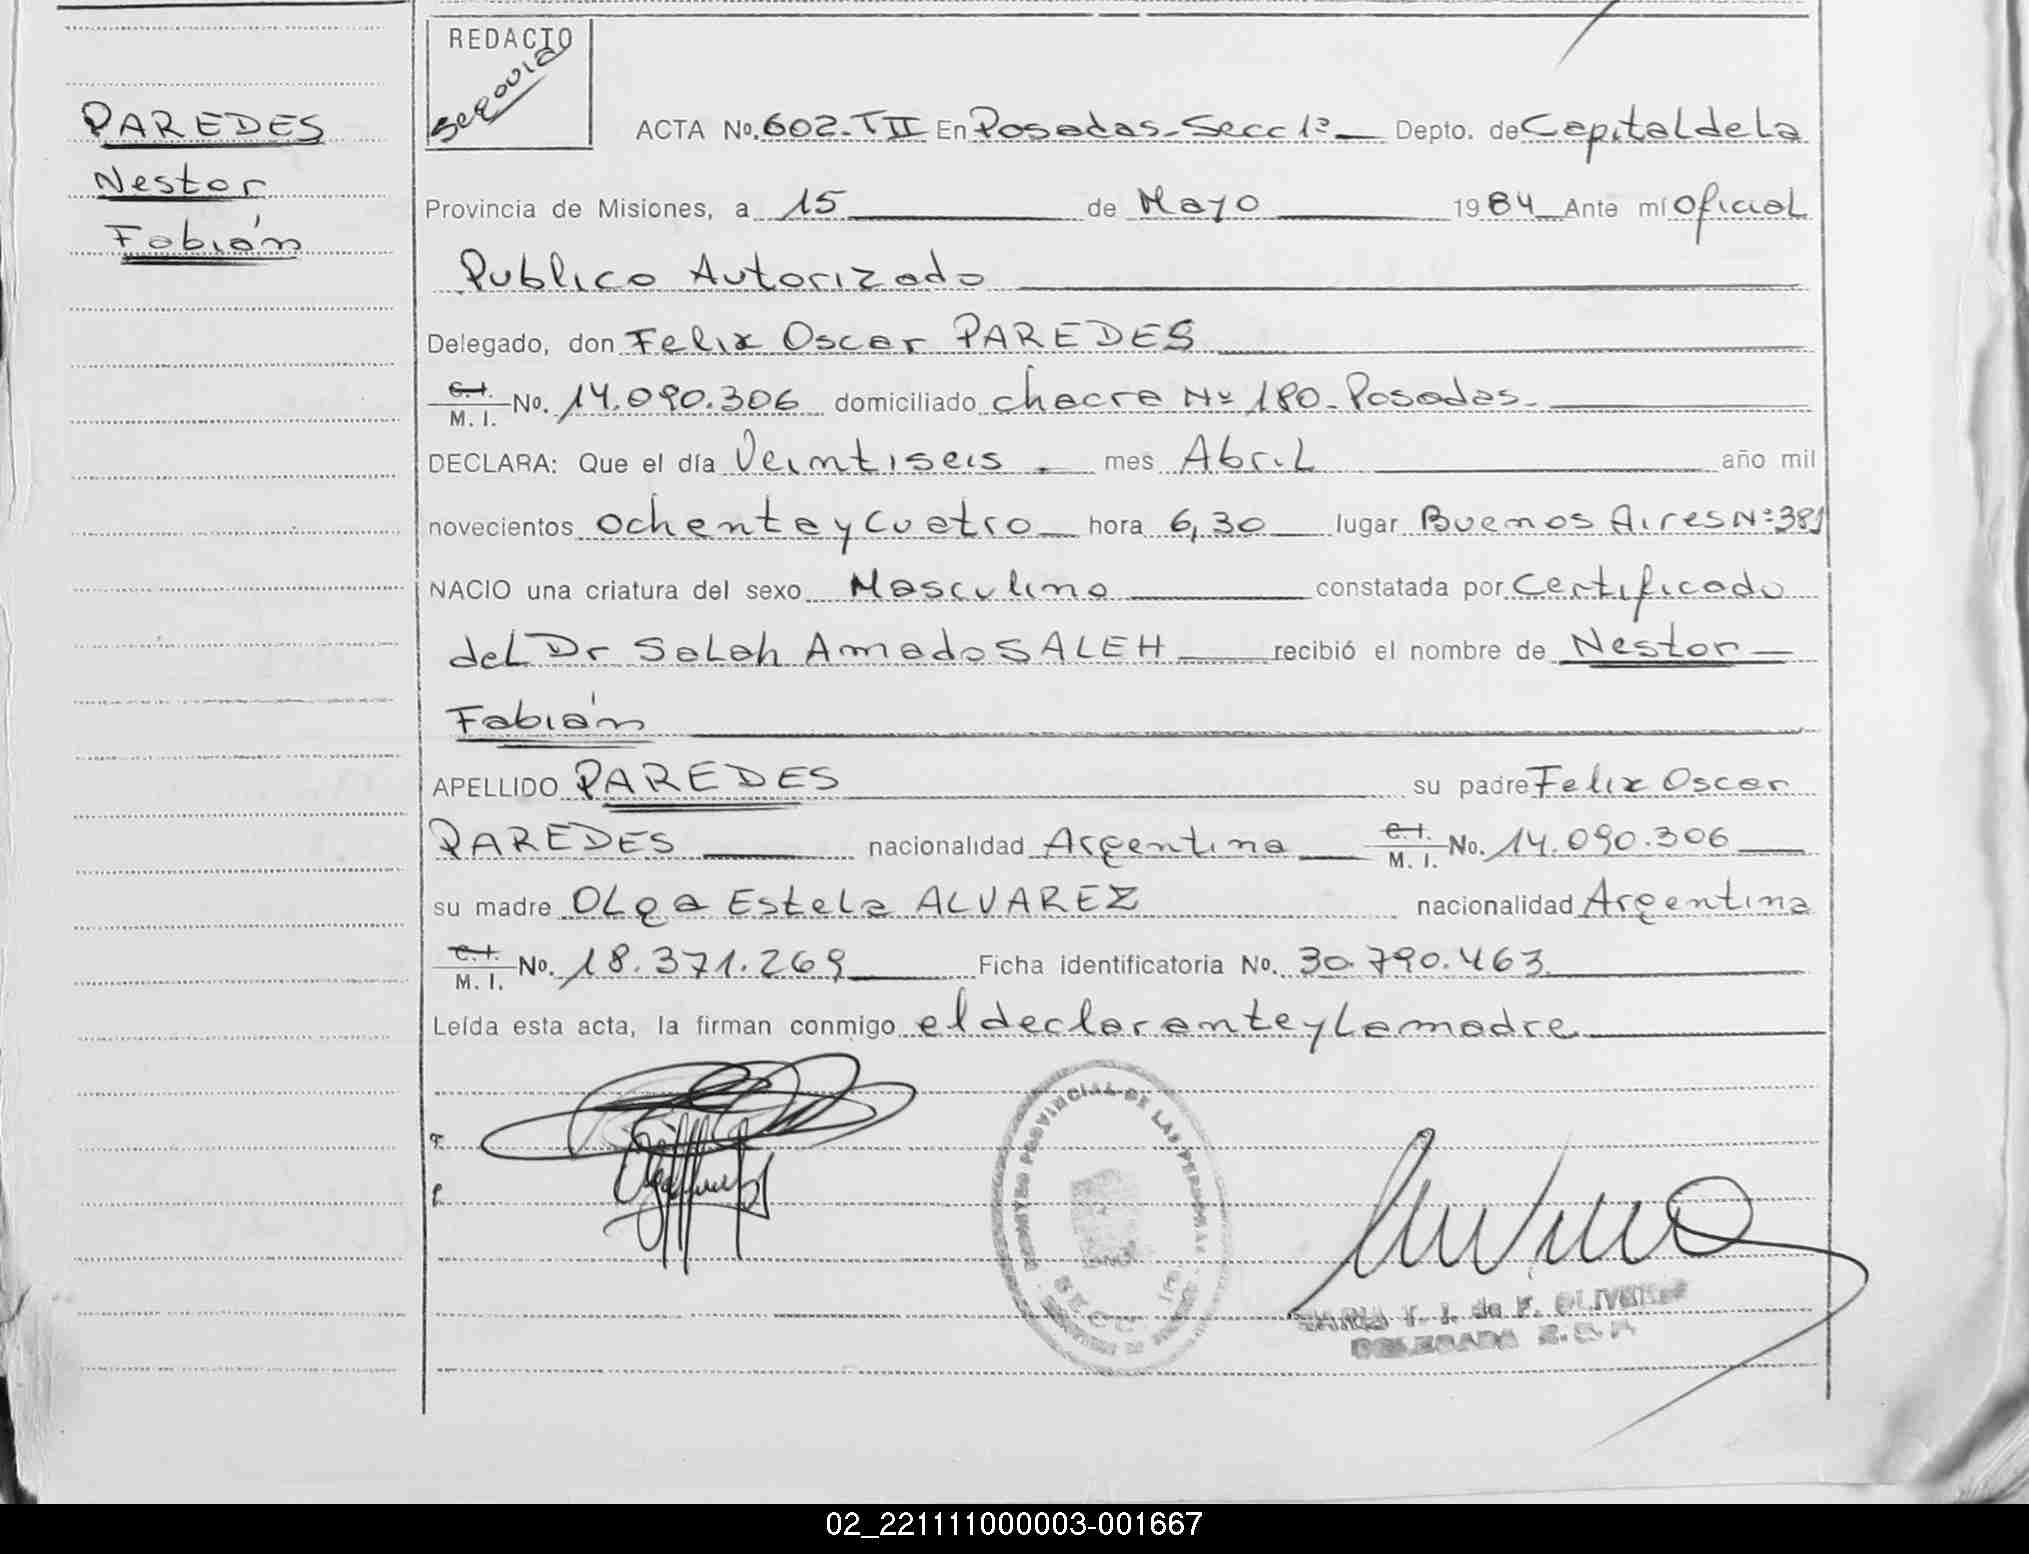 REDACTO
Segovia
PAREDES
Nestor
Fabián
ACTA No. 602-TII En Posadas-Secc 1ª Depto. de Capital de la
Provincia de Misiones, a 15 de Mayo 1984 Ante mí Oficial
Publico Autorizado
Delegado, don Felix Oscar PAREDES
C.I. M.I. No. 14.090.306 domiciliado chacra Nº 180-Posadas.
DECLARA: Que el día Veintiseis mes Abril año mil
novecientos ochenta y cuatro hora 6,30 lugar Buenos Aires Nº 381
NACIO una criatura del sexo Masculino constatada por Certificado
del Dr Salah Amado SALEH recibió el nombre de Nestor
Fabián
APELLIDO PAREDES su padre Felix Oscar
PAREDES nacionalidad Argentina C.I. M.I. No. 14.090.306
su madre Olga Estela ALVAREZ nacionalidad Argentina
C.I. M.I. No. 18.371.269 Ficha identificatoria No. 30.790.463
Leída esta acta, la firman conmigo el declarante y la madre
REGISTRO PROVINCIAL DE LAS PERSONAS
SECC 1ª
MARIA T. J. de F. OLIVEIRA
DELEGADA
02_221111000003-001667